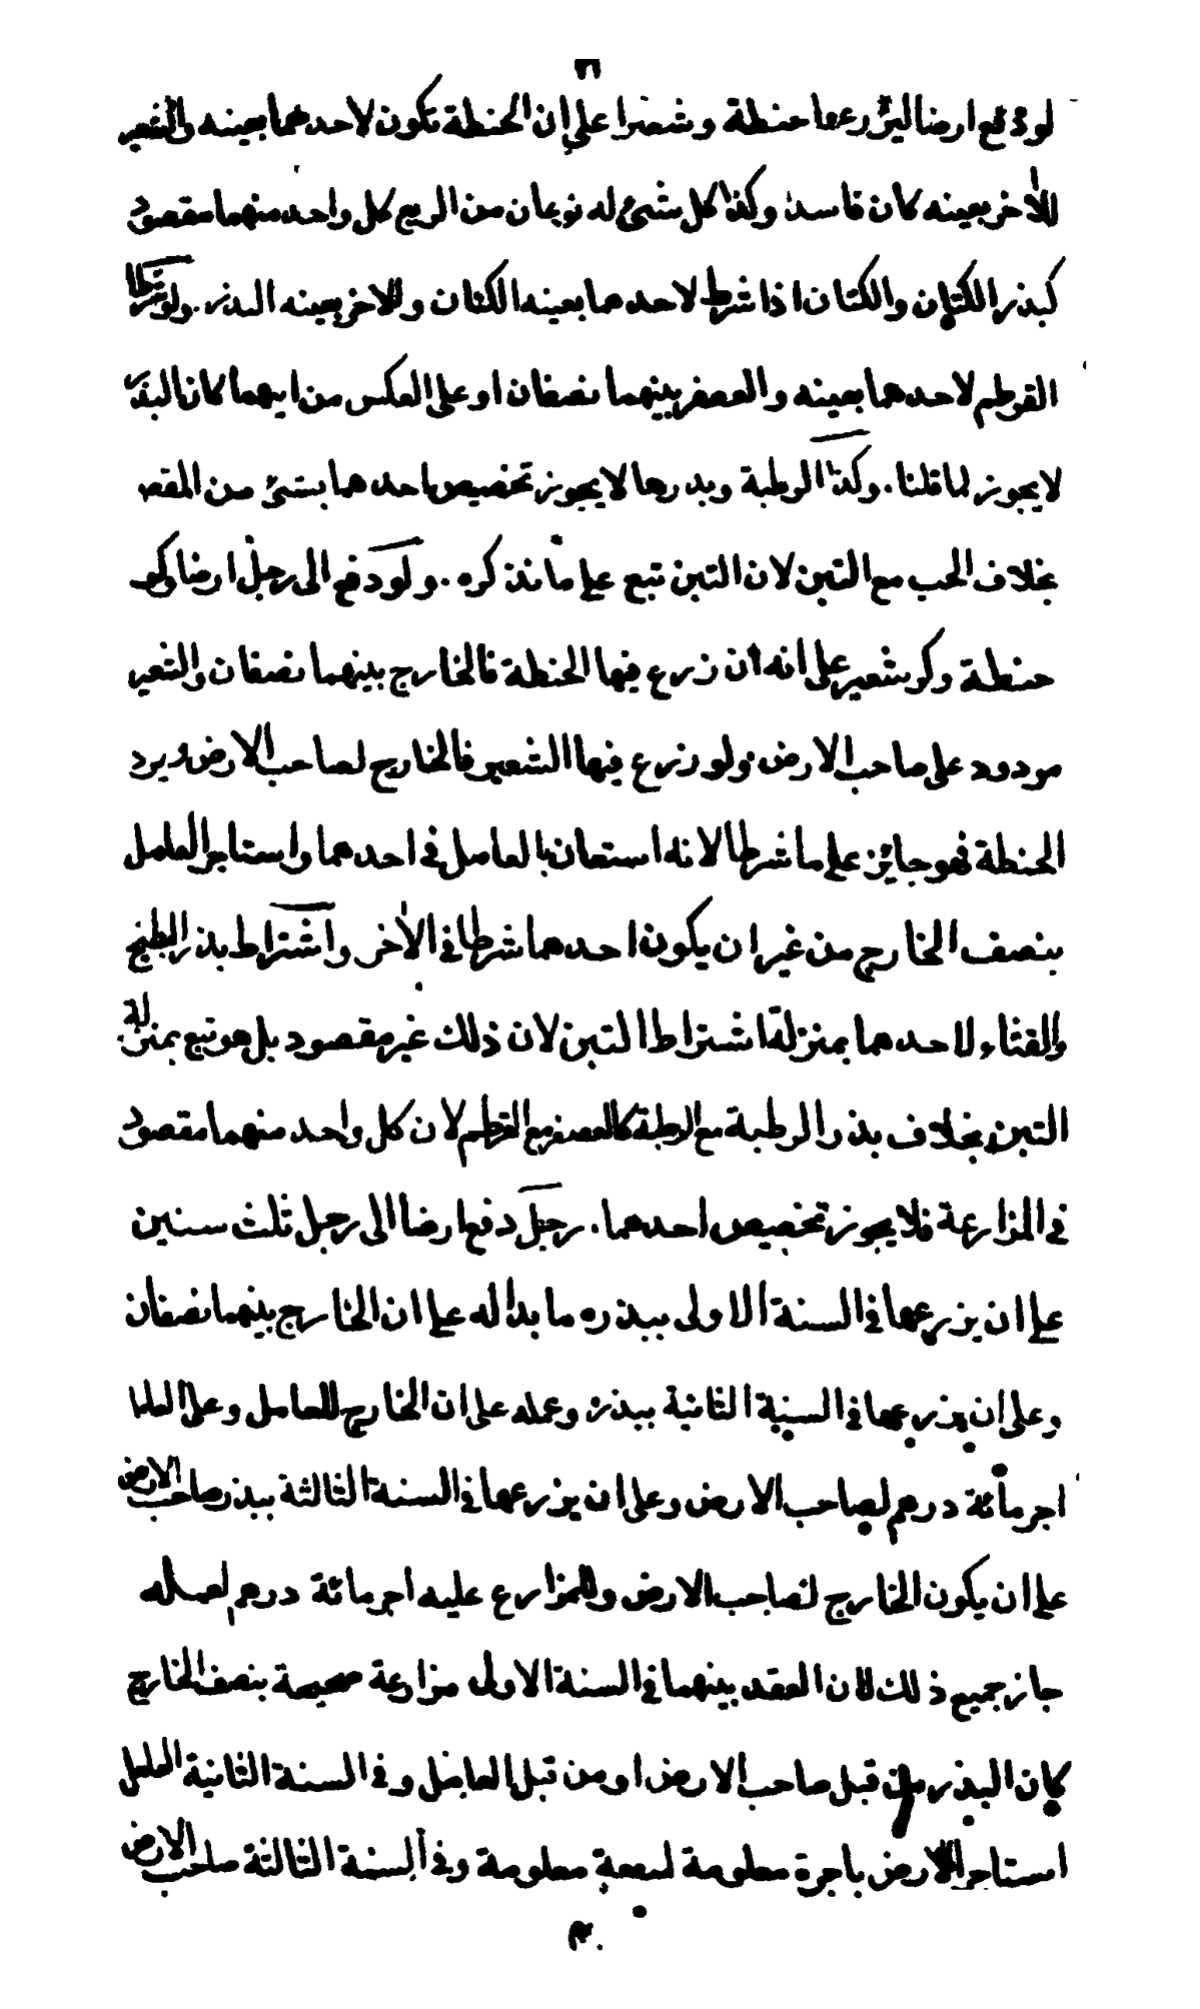 لو دفع ارضا ليزرعها حنطة وشعيرا على ان الحنطة تكون لاحدهما بعينه والشعير
للآخر بعينه كان فاسدا وكذا كل شئ له نوعان من الريع كل واحد منهما مقصود
كبذر الكتان والكتان اذا شرط لاحدهما بعينه الكتان وللاخر بعينه البذر . ولو شرطا
القرطم لاحدهما بعينه والعصفر بينهما نصفان او على العكس من ايهما كان البذر
لا يجوز لما قلنا . وكذا الرطبة وبذرها لا يجوز تخصيص احدهما بشئ من المقصود
بخلاف الحب مع التبن لان التبن تبع على ما نذكره . ولو دفع الى رجل ارضا وكر
حنطة وكر شعير على انه ان زرع فيها الحنطة فالخارج بينهما نصفان والشعير
مردود على صاحب الارض ولو زرع فيها الشعير فالخارج لصاحب الارض ويرد
الحنطة فهو جائز على ما شرطا لانه استعان بالعامل في احدهما واستاجر العامل
بنصف الخارج من غير ان يكون احدهما شرطا في الآخر واشتراط بذر البطيخ
والقثاء لاحدهما بمنزلة اشتراط التبن لان ذلك غير مقصود بل هو تبع بمنزلة
التبن بخلاف بذر الرطبة مع الرطبة كالعصفر مع القرطم لان كل واحد منهما مقصود
في المزارعة فلا يجوز تخصيص احدهما . رجل دفع ارضا الى رجل ثلث سنين
على ان يزرعها في السنة الاولى ببذره ما بدا له على ان الخارج بينهما نصفان
وعلى ان يزرعها في السنة الثانية ببذره وعمله على ان الخارج للعامل وعلى العامل
اجر مائة درهم لصاحب الارض وعلى ان يزرعها في السنة الثالثة ببذر صاحب الارض
على ان يكون الخارج لصاحب الارض وللمزارع عليه اجر مائة درهم لعمله
جاز جميع ذلك لان العقد بينهما في السنة الاولى مزارعة صحيحة بنصف الخارج
كان البذر من قبل صاحب الارض او من قبل العامل وفي السنة الثانية العامل
استاجر الارض باجرة معلومة لسنة معلومة وفي السنة الثالثة صاحب الارض